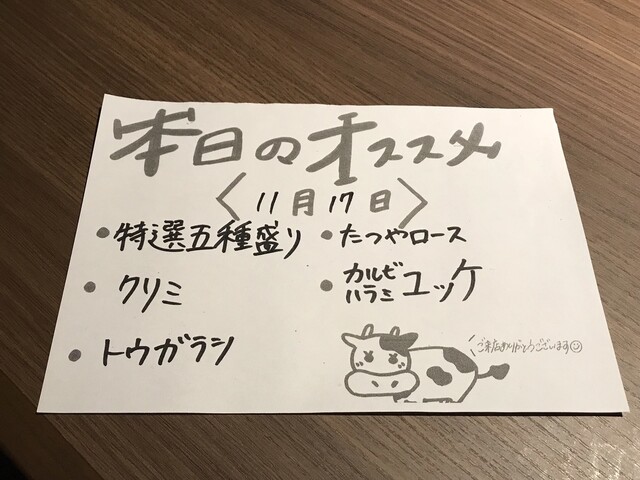 本日のオススメ
〈11月17日〉
・特選五種盛り
・クリミ
・トウガラシ
・たつやロース
・カルビ
ハラミ ユッケ
ご来店ありがとうございます☺